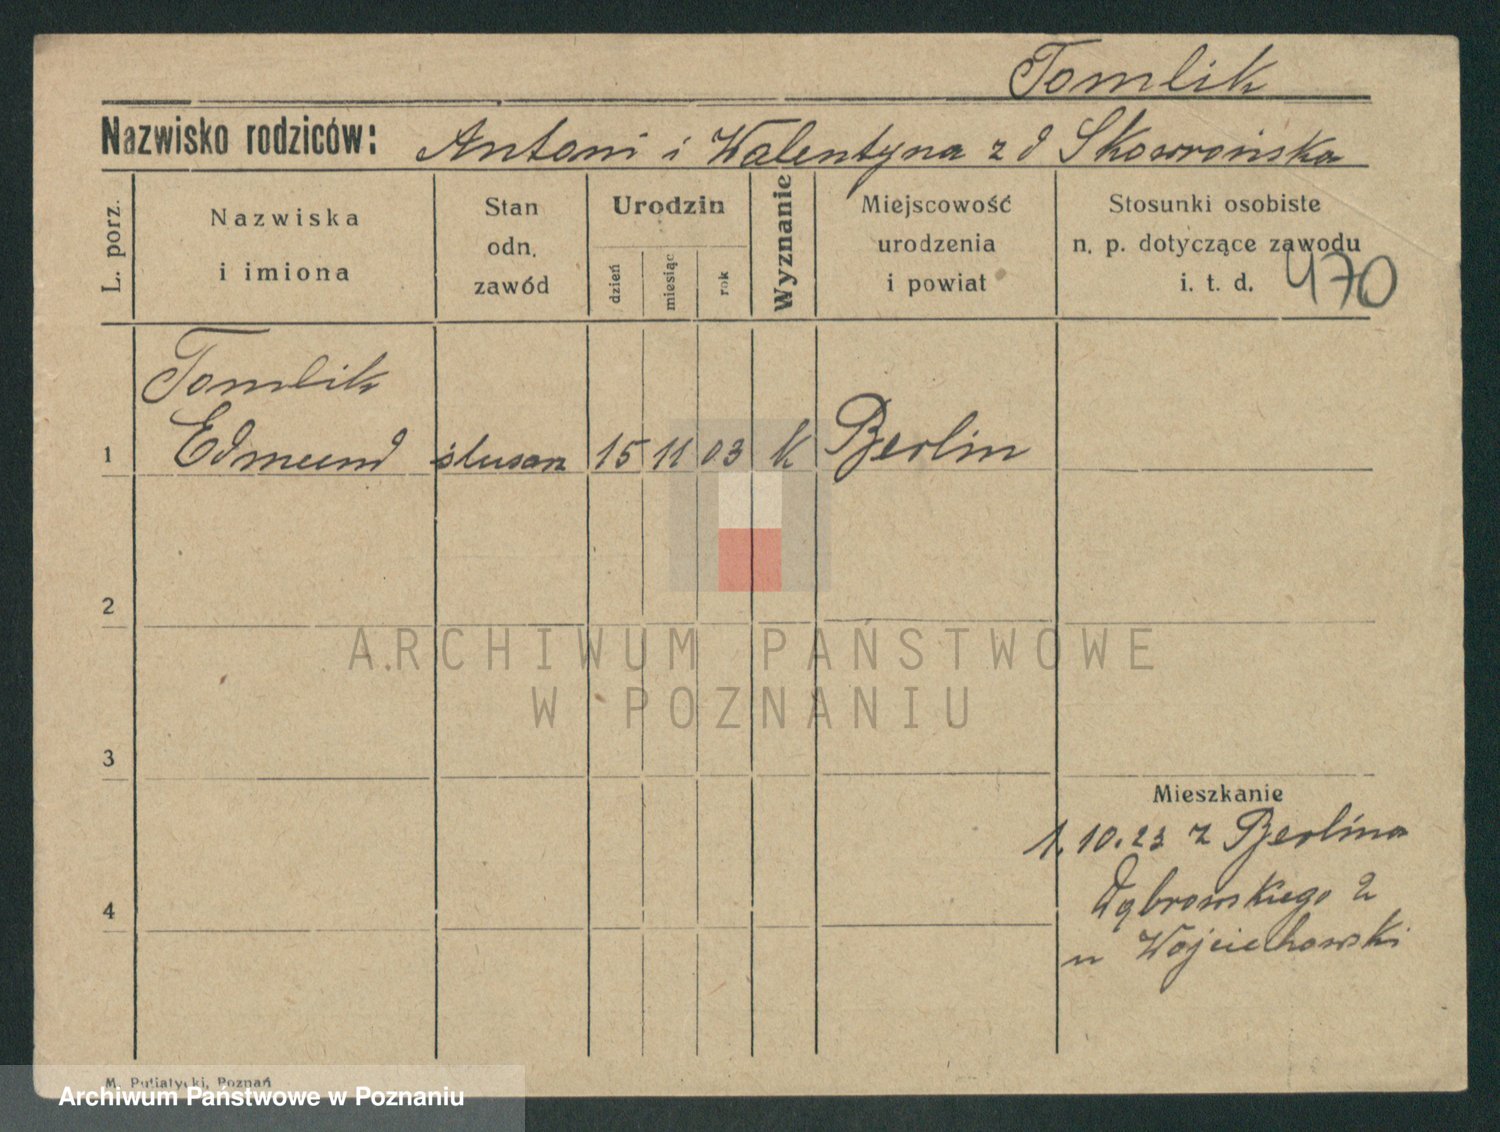 Tomlik
Nazwisko rodziców: Antoni i Walentyna z d Skowrońska
L. porz.
Nazwiska
i imiona
Stan
odn.
zawód
Urodzin
dzień
miesiąc
rok
Wyznanie
Miejscowość
urodzenia
i powiat
Stosunki osobiste
n. p. dotyczące zawodu
i. t. d.
470
Tomlik
1 Edmund ślusarz 15 11 03 K Berlin
2
ARCHIWUM PAŃSTWOWE
W POZNANIU
3
Mieszkanie
1.10.23 z Berlina
4 Dąbrowskiego 2
u Wojciechowski
M. Putiatycki, Poznań
Archiwum Państwowe w Poznaniu